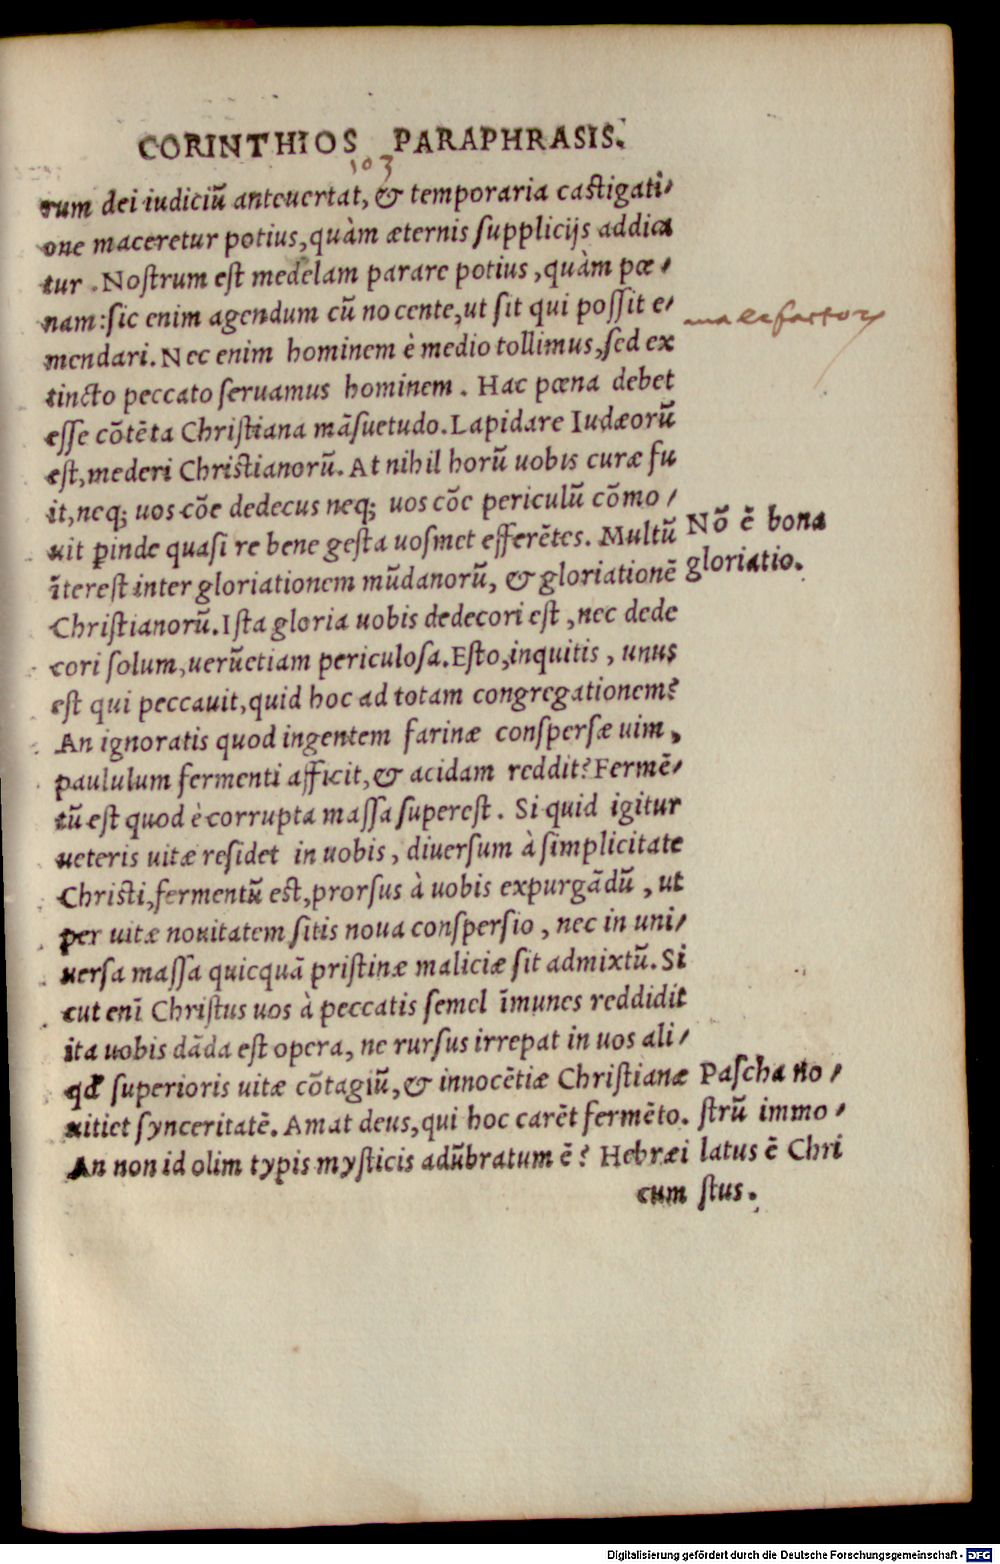 CORINTHIOS PARAPHRASIS.
103
rum dei iudiciũ anteuertat, & temporaria castigati-
one maceretur potius, quàm æternis supplicijs addica
tur. Nostrum est medelam parare potius, quàm pœ-
nam: sic enim agendum cũ nocente, ut sit qui possit e-
mendari. Nec enim hominem è medio tollimus, sed ex
tincto peccato seruamus hominem. Hac pœna debet
esse cõtẽta Christiana mãsuetudo. Lapidare Iudæorũ
est, mederi Christianorũ. At nihil horũ uobis curæ fu
it, neq; uos cõe dedecus neq; uos cõe periculũ cõmo-
uit ꝑinde quasi re bene gesta uosmet efferẽtes. Multũ
ĩterest inter gloriationem mũdanorũ, & gloriationẽ
Christianorũ. Ista gloria uobis dedecori est, nec dede
cori solum, uerũetiam periculosa. Esto, inquitis, unus
est qui peccauit, quid hoc ad totam congregationem?
An ignoratis quod ingentem farinæ conspersæ uim,
paululum fermenti afficit, & acidam reddit? Fermẽ-
tũ est quod è corrupta massa superest. Si quid igitur
ueteris uitæ residet in uobis, diuersum à simplicitate
Christi, fermentũ est, prorsus à uobis expurgãdũ, ut
per uitæ nouitatem sitis noua conspersio, nec in uni-
uersa massa quicquã pristinæ maliciæ sit admixtũ. Si
cut enĩ Christus uos à peccatis semel ĩmunes reddidit
ita uobis dãda est opera, ne rursus irrepat in uos ali-
qđ superioris uitæ cõtagiũ, & innocẽtiæ Christianæ
uitiet synceritatẽ. Amat deus, qui hoc carẽt fermẽto.
An non id olim typis mysticis adũbratum ẽ? Hebræi
cum
malefactor
Nõ ẽ bona
gloriatio.
Pascha no-
strũ immo-
latus ẽ Chri
stus.
Digitalisierung gefördert durch die Deutsche Forschungsgemeinschaft - DFG